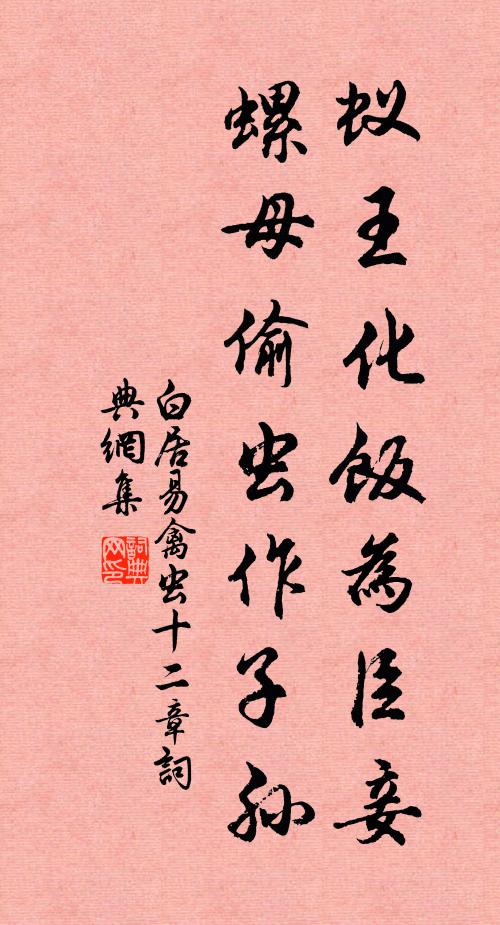 蚁王化飯為臣妾
螺母偷虫作子孫
白居易禽虫十二章詞
典網集
詞典
网印